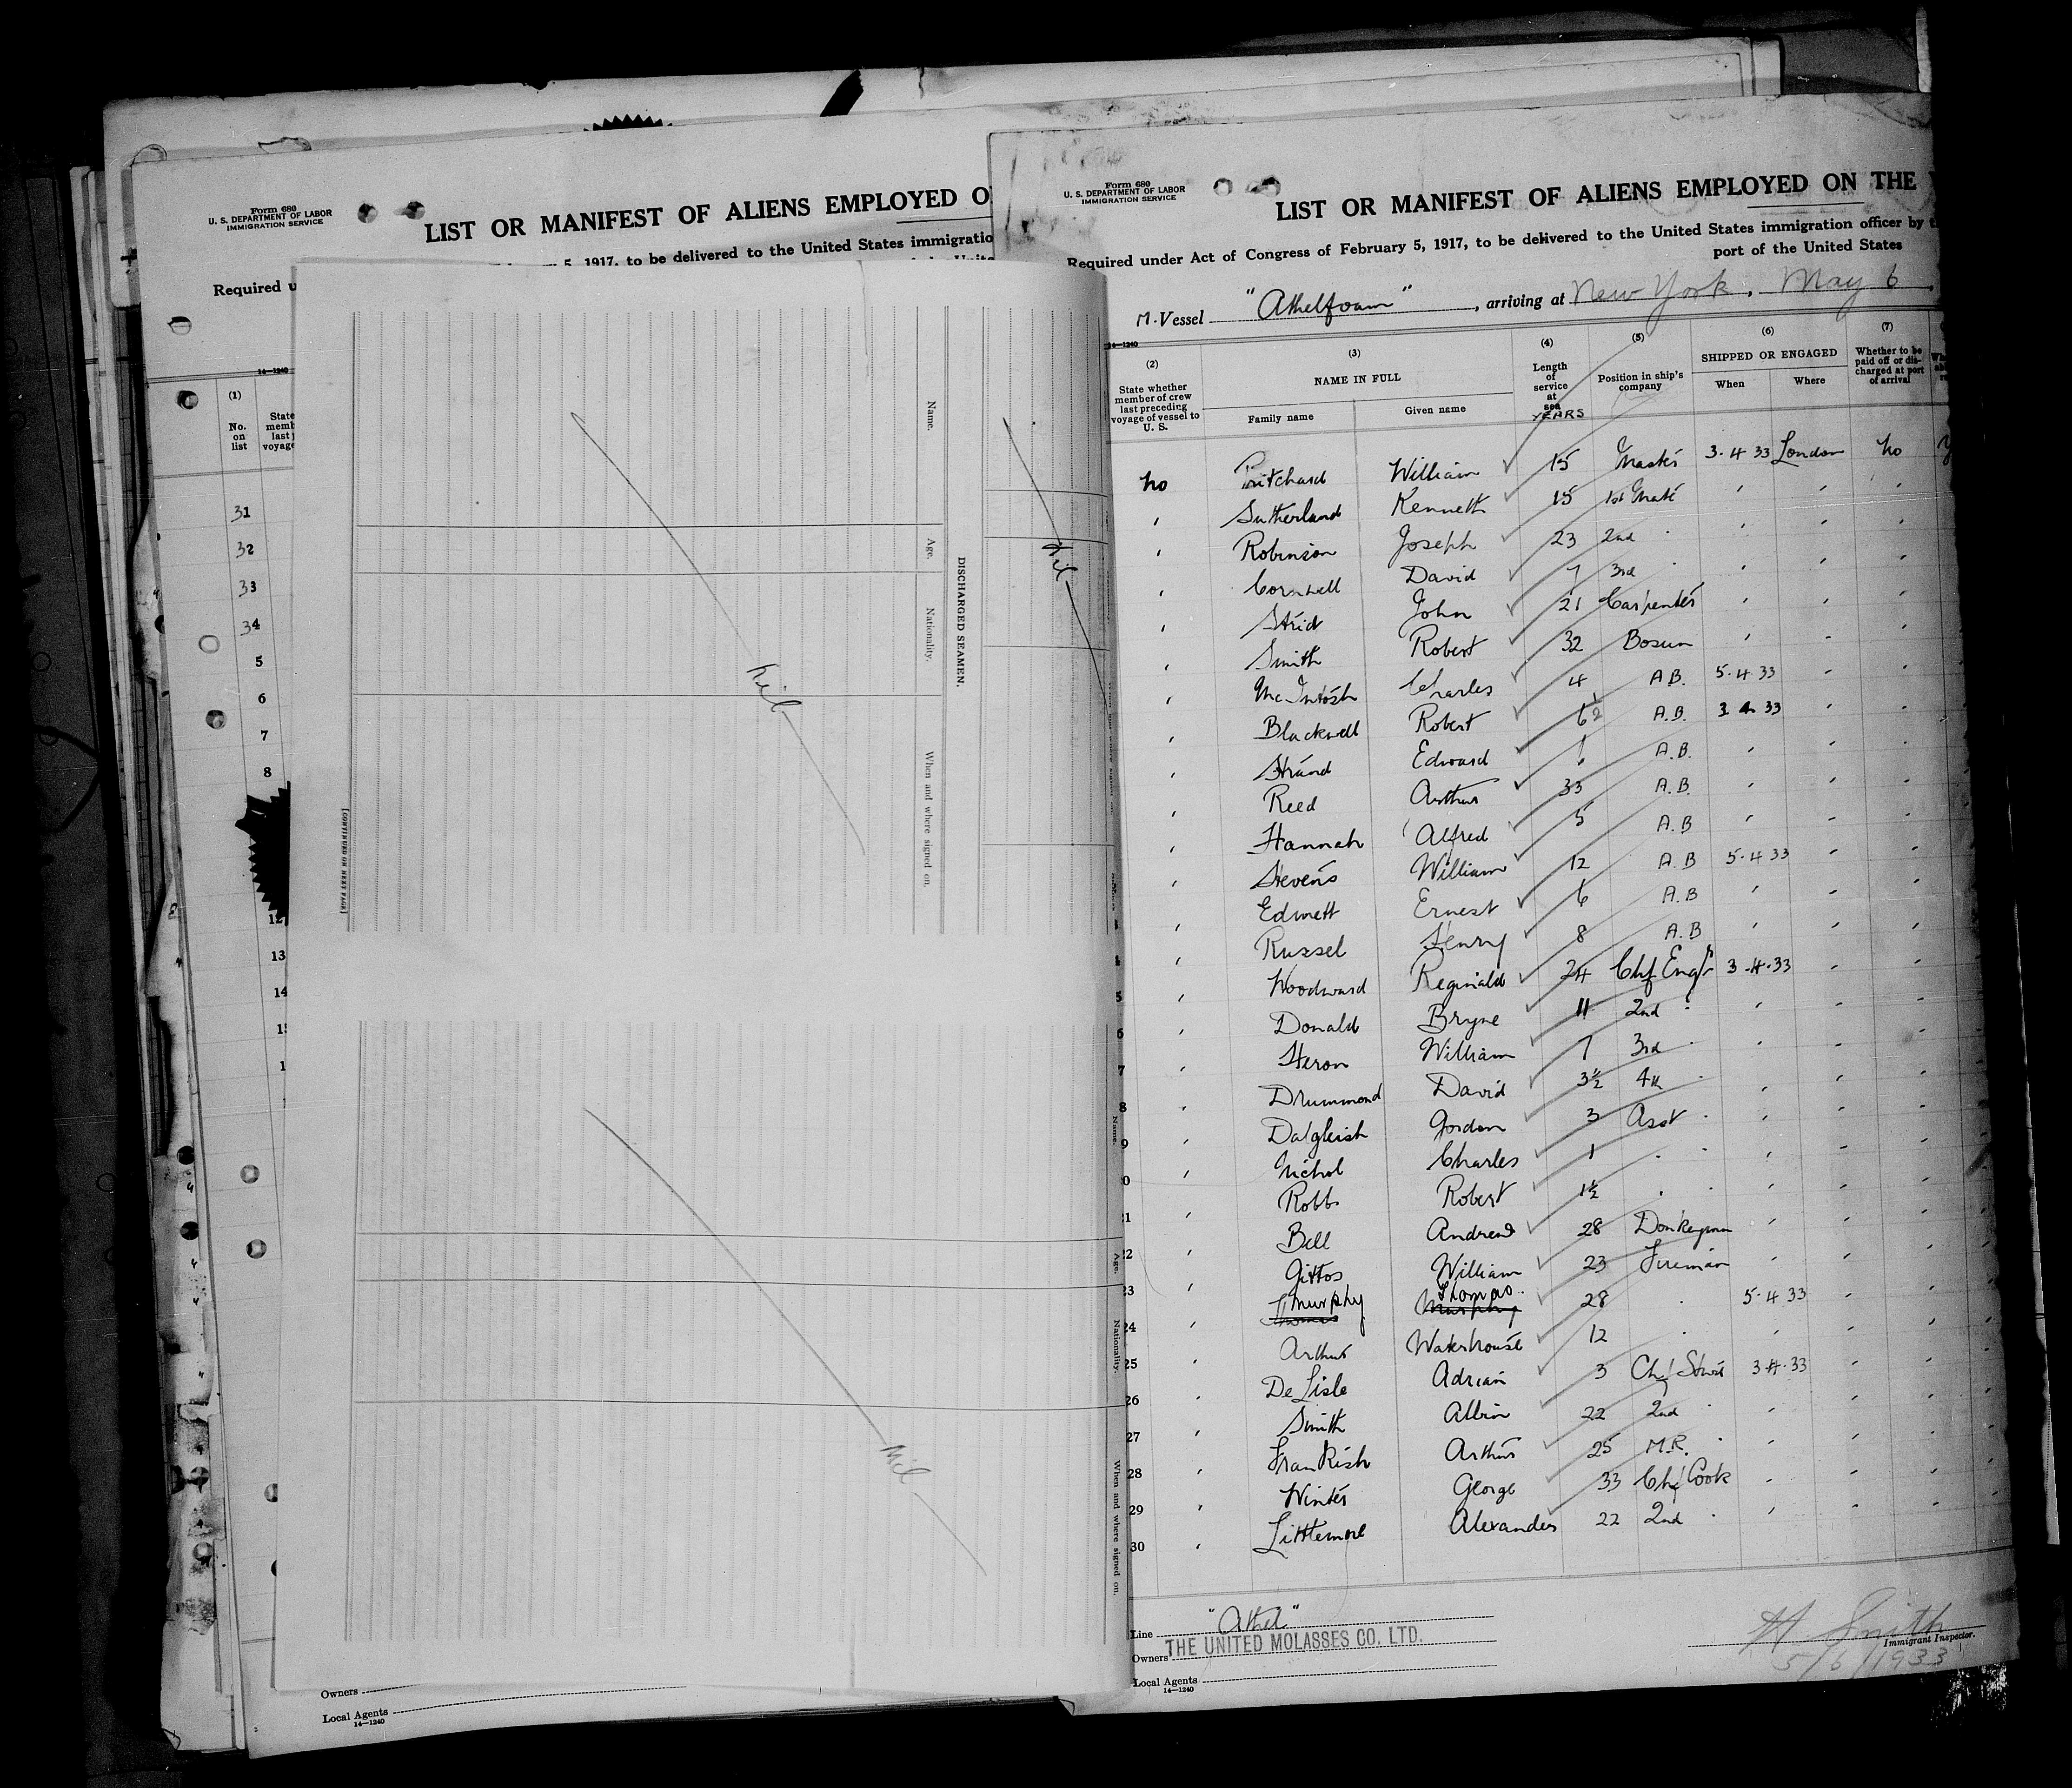 Form 680
U. S. DEPARTMENT OF LABOR
IMMIGRATION SERVICE
LIST OR MANIFEST OF ALIENS EMPLOYED O
5, 1917, to be delivered to the United States immigratio
Required u
14—1240
(1)
No.
on
list
State
memb
last p
voyage
31
32
33
34
5
6
7
8
12
13
14
1
Name.
Age.
Nationality.
When and where signed on.
DISCHARGED SEAMEN.
[CONTINUED ON NEXT PAGE]
Nil
Nil
Nil
Name.
Age.
Nationality.
When and where signed on.
Owners
Local Agents
14—1240
Form 680
U. S. DEPARTMENT OF LABOR
IMMIGRATION SERVICE
LIST OR MANIFEST OF ALIENS EMPLOYED ON THE
Required under Act of Congress of February 5, 1917, to be delivered to the United States immigration officer by t
port of the United States
M. Vessel "Athelfoam", arriving at New York, May 6
14—1240
(2) (3) (4) (5) (6) (7)
State whether member of crew last preceding voyage of vessel to U. S.
NAME IN FULL
Family name Given name
Length of service at sea YEARS
Position in ship's company
SHIPPED OR ENGAGED
When Where
Whether to be paid off or discharged at port of arrival
no Pritchard William 15 Master 3.4.33 London no
" Sutherland Kenneth 15 1st Mate " " "
" Robinson Joseph 23 2nd " " " "
" Cornwell David 7 3rd " " " "
" Strid John 21 Carpenter " " "
" Smith Robert 32 Bosun " " "
" McIntosh Charles 4 A.B. 5.4.33 " "
" Blackwell Robert 6½ A.B. 3.4.33 " "
" Strand Edward 1 A.B. " " "
" Reed Arthur 33 A.B. " " "
" Hannah Alfred 5 A.B " " "
" Stevens William 12 A.B 5.4.33 " "
" Edmett Ernest 6 A.B " " "
" Russel Henry 8 A.B " " "
5 " Woodward Reginald 24 Chf Engr 3.4.33 " "
6 " Donald Bryne 11 2nd " " " "
7 " Heron William 7 3rd " " " "
8 " Drummond David 3½ 4th " " " "
9 " Dalgleish Gordon 3 Asst " " " "
0 " Nichol Charles 1 " " " " "
21 " Robb Robert 1½ " " " " "
22 " Bell Andrew 28 Donkeyman " " "
23 " Gittos William 23 Fireman " " "
24 " Murphy Thomas 28 " 5.4.33 " "
25 " Arthur Waterhouse 12 " " " "
26 " De Lisle Adrian 3 Chf Stwd 3.4.33 " "
27 " Smith Albin 22 2nd " " " "
28 " Frankish Arthur 25 M.R. " " " "
29 " Winter George 33 Chf Cook " " "
30 " Littlemore Alexander 22 2nd " " " "
Line "Athel"
Owners THE UNITED MOLASSES CO. LTD.
Local Agents
14—1240
H. Smith
Immigrant Inspector.
5/6/1933